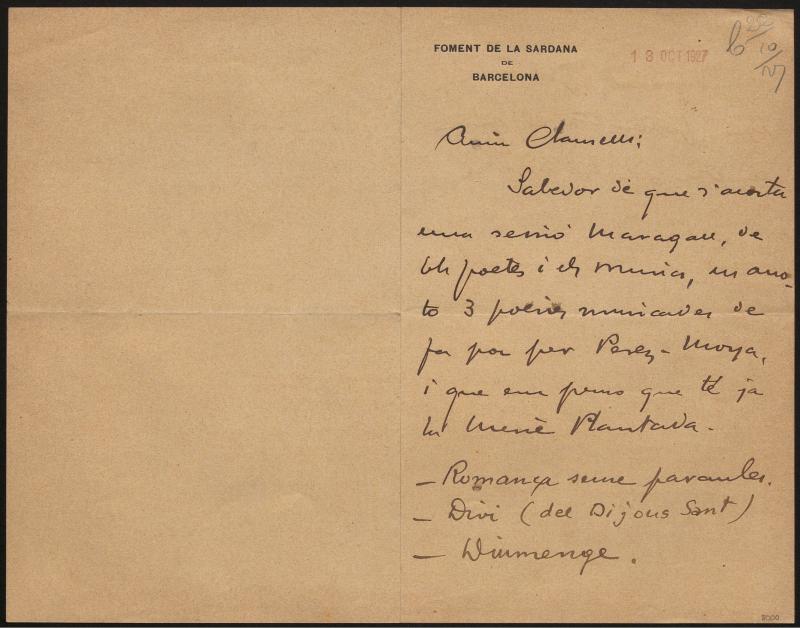 FOMENT DE LA SARDANA
DE
BARCELONA
13 OCT 1927
22
10
27
Amic Clausells:
Sabedor de que s'acosta
una sessió Maragall, de
els poetes i els músics, us ano-
to 3 poesies musicades de
fa poc per Perez-Moya,
i que em penso que té ja
la Mercè Plantada.
- Romança sense paraules.
- Diví (del Dijous Sant)
- Diumenge.